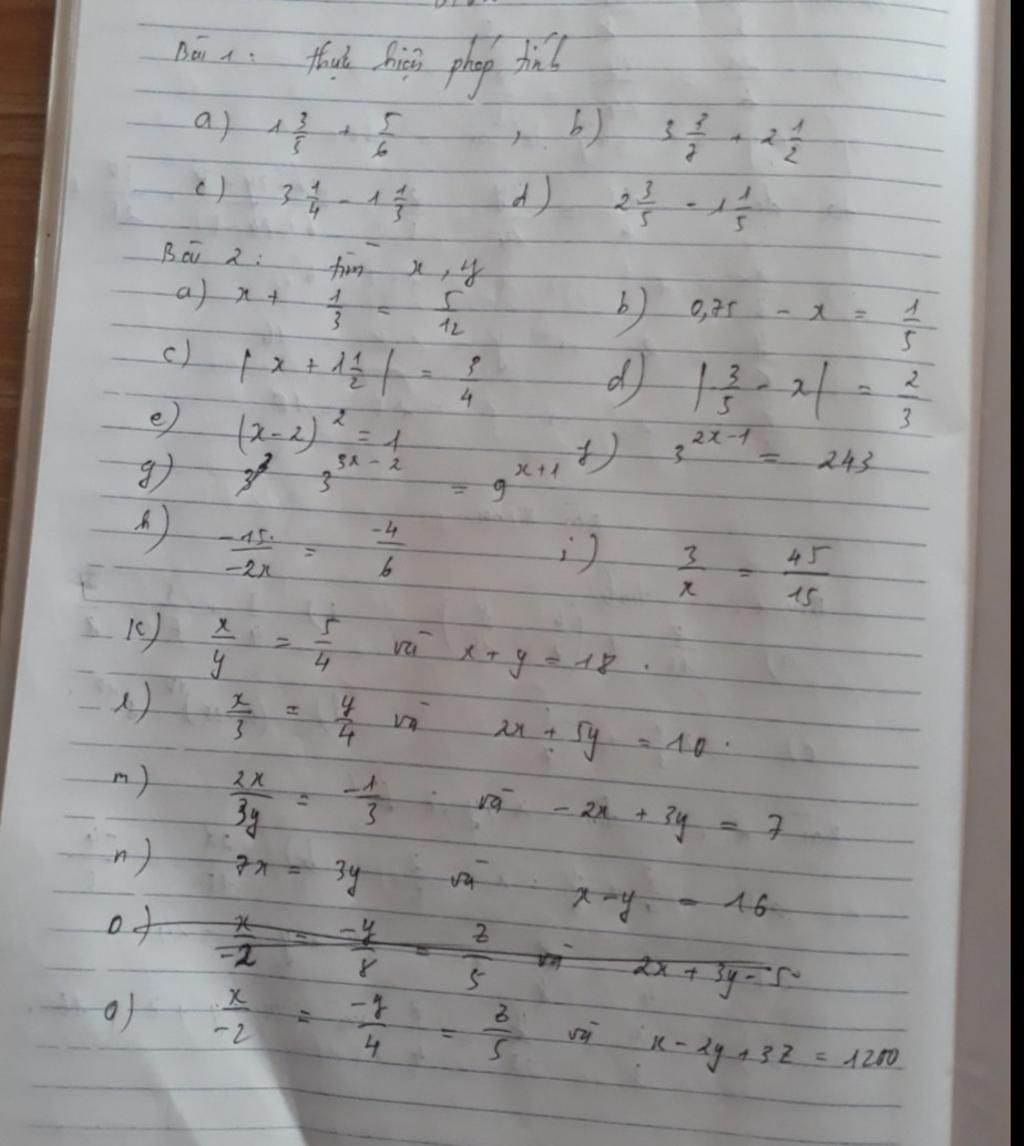 Bài 1: thực hiện phép tính
a) 1 3/5 + 5/6 , b) 3 3/7 + 2 1/2
c) 3 1/4 - 1 1/3 d) 2 3/5 - 1 1/5
Bài 2: tìm x, y
a) x + 1/3 = 5/12 b) 0,75 - x = 1/5
c) |x + 1 1/2| = 3/4 d) |3/5 - x| = 2/3
e) (x-2)^2 = 1 f) 3^(2x-1) = 243
g) 3^(3x-2) = 9^(x+1)
h) -15/-2x = -4/6 i) 3/x = 45/15
k) x/y = 5/4 và x + y = 18.
l) x/3 = y/4 và 2x + 5y = 10.
m) 2x/3y = -1/3 và -2x + 3y = 7
n) 7x = 3y và x - y = 16
o) x/-2 = -y/8 = z/5 và 2x + 3y - 5
o) x/-2 = -y/4 = z/5 và x - 2y + 3z = 1200